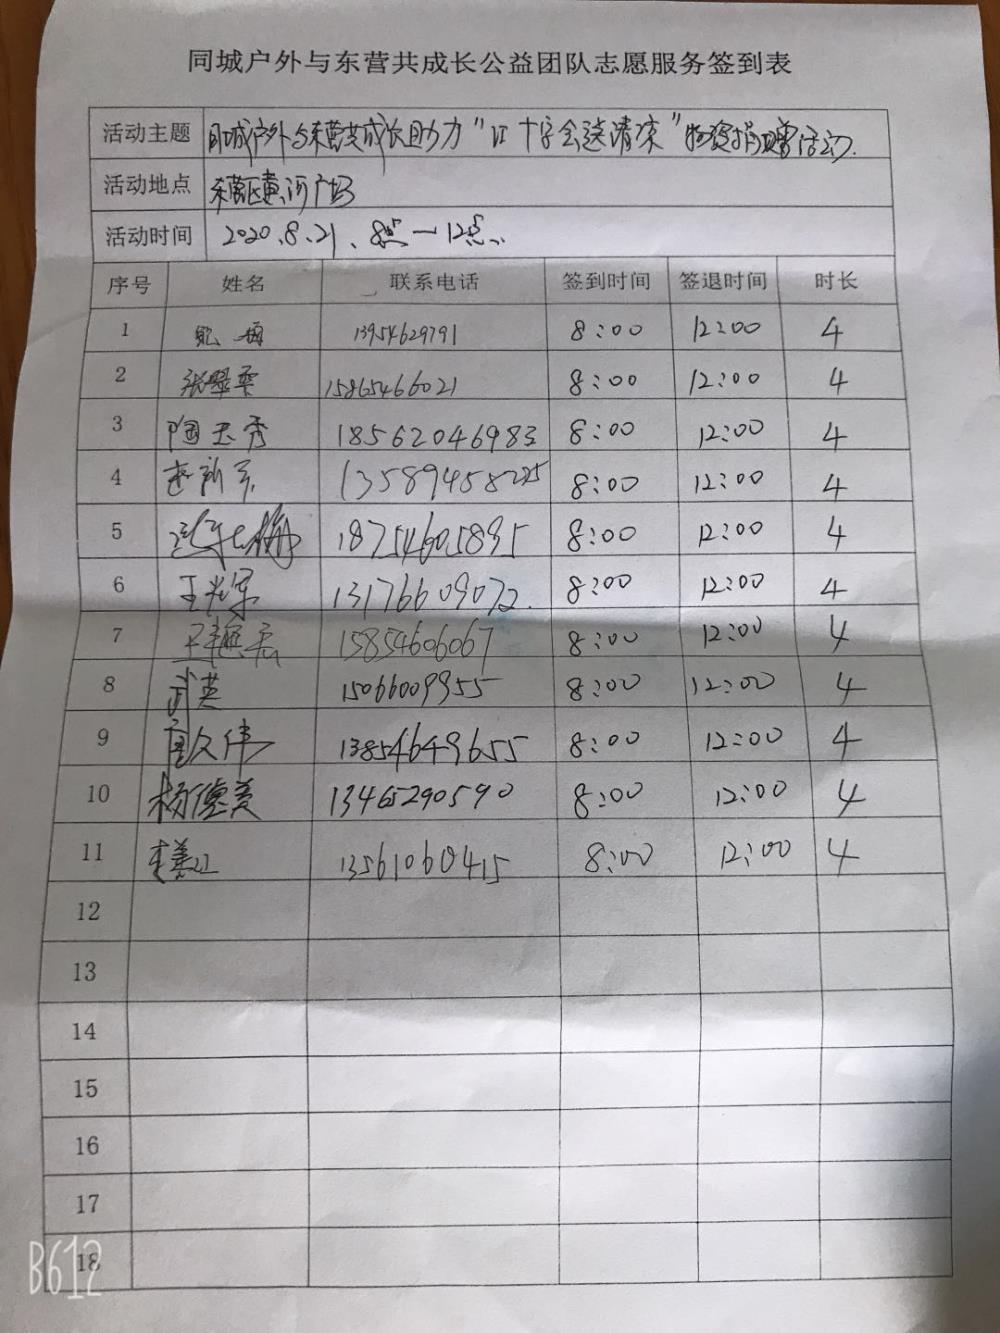 同城户外与东营共成长公益团队志愿服务签到表
活动主题 同城户外与东营共成长助力“红十字会送清凉”物资捐赠活动.
活动地点 东营区黄河广场
活动时间 2020.8.21、8点一12点.
序号 姓名 联系电话 签到时间 签退时间 时长
1 13954629791 8:00 12:00 4
2 张翠云 15865466021 8:00 12:00 4
3 陶玉秀 18562046983 8:00 12:00 4
4 赵新 8:00 12:00 4
5 18754605895 8:00 12:00 4
6 王光军 13176609072. 8:00 12:00 4
7 15854606067 8:00 12:00 4
8 武英 15066009955 8:00 12:00 4
9 文伟 13854649655 8:00 12:00 4
10 杨德美 13465290590 8:00 12:00 4
11 李美江 13561060415 8:00 12:00 4
12
13
14
15
16
17
18
B612